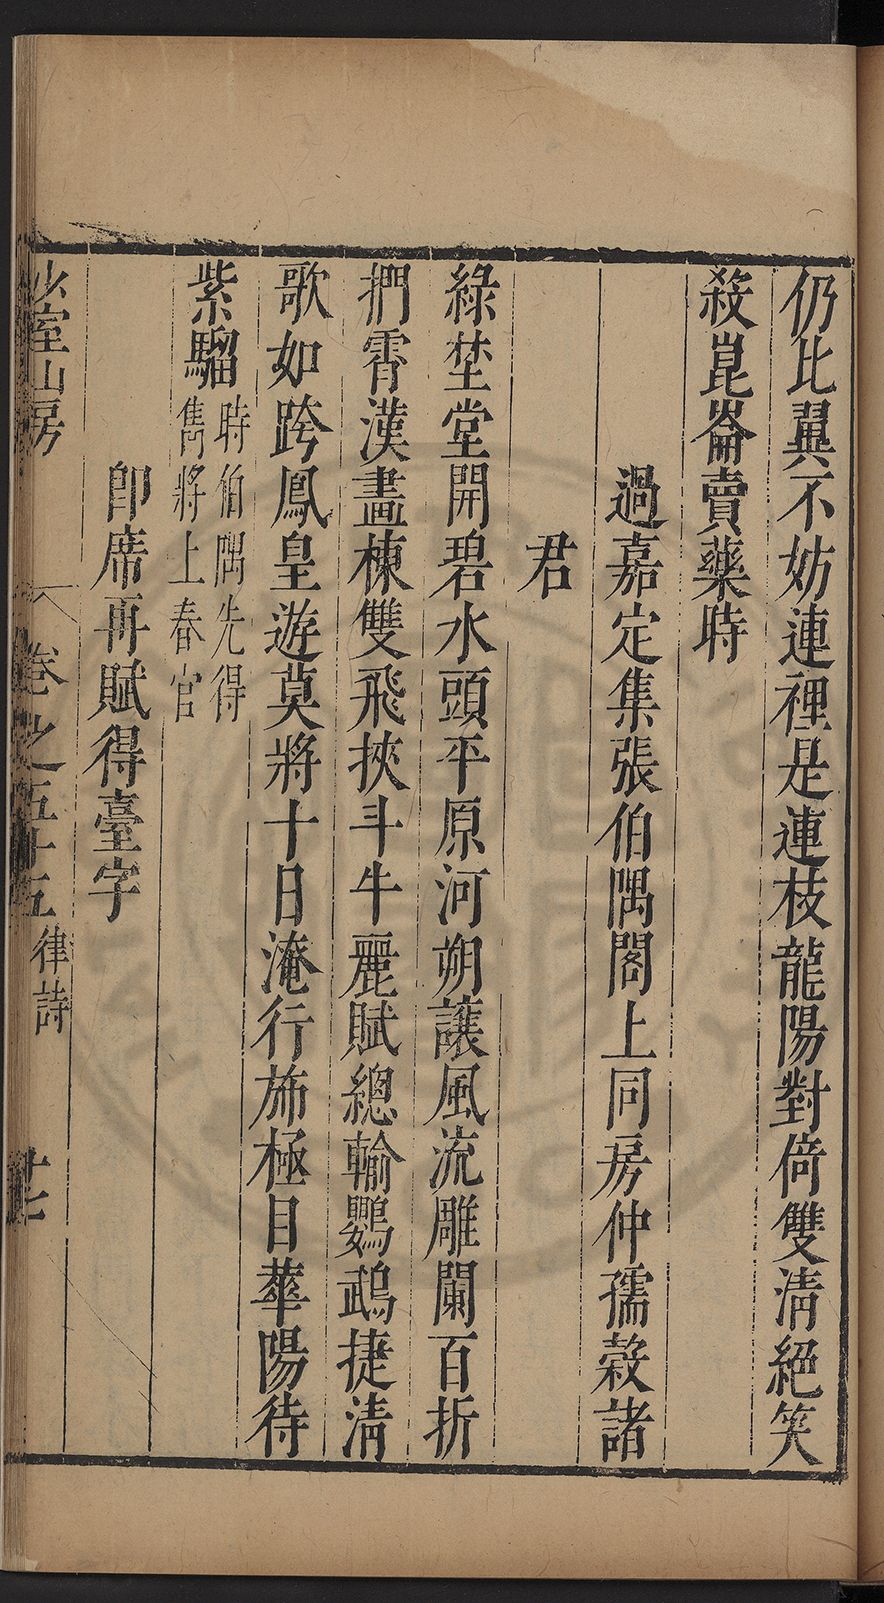 仍比翼不妨連裡是連枝龍陽對倚雙淸絕笑
殺崑崙賣藥時
過嘉定集張伯隅閣上同房仲孺榖諸
君
綠埜堂開碧水頭平原河朔讓風流雕闌百折
捫霄漢畫棟雙飛挾斗牛麗賦總輸鸚鵡捷淸
歌如跨鳳皇遊莫將十日淹行斾極目華陽待
紫騮
時伯隅先得
雋將上春官
卽席再賦得臺字
少室山房
卷之五十五
律詩
廿七